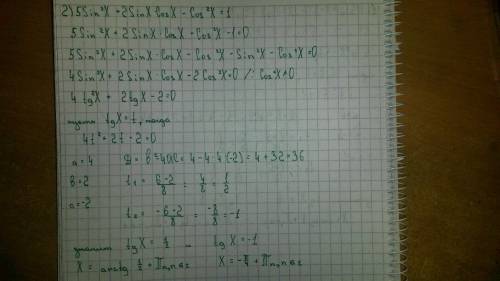 2) 5Sin²X + 2SinX CosX - Cos²X = 1
5Sin²X + 2SinX · CosX - Cos²X - 1 = 0
5Sin²X + 2SinX · CosX - Cos²X - Sin²X - Cos²X = 0
4Sin²X + 2SinX · CosX - 2Cos²X = 0 /: Cos²X ≠ 0
4 tg²X + 2tgX - 2 = 0
пусть tgX = t, тогда
4t² + 2t - 2 = 0
a = 4 D = b² - 4ac = 4 - 4·4·(-2) = 4 + 32 = 36
b = 2 t₁ = (6-2)/8 = 4/8 = 1/2
c = -2
t₂ = (-6-2)/8 = -8/8 = -1
значит tgX = 1/2 tgX = -1
X = arctg 1/2 + πn, n∈z X = -π/4 + πn, n∈z